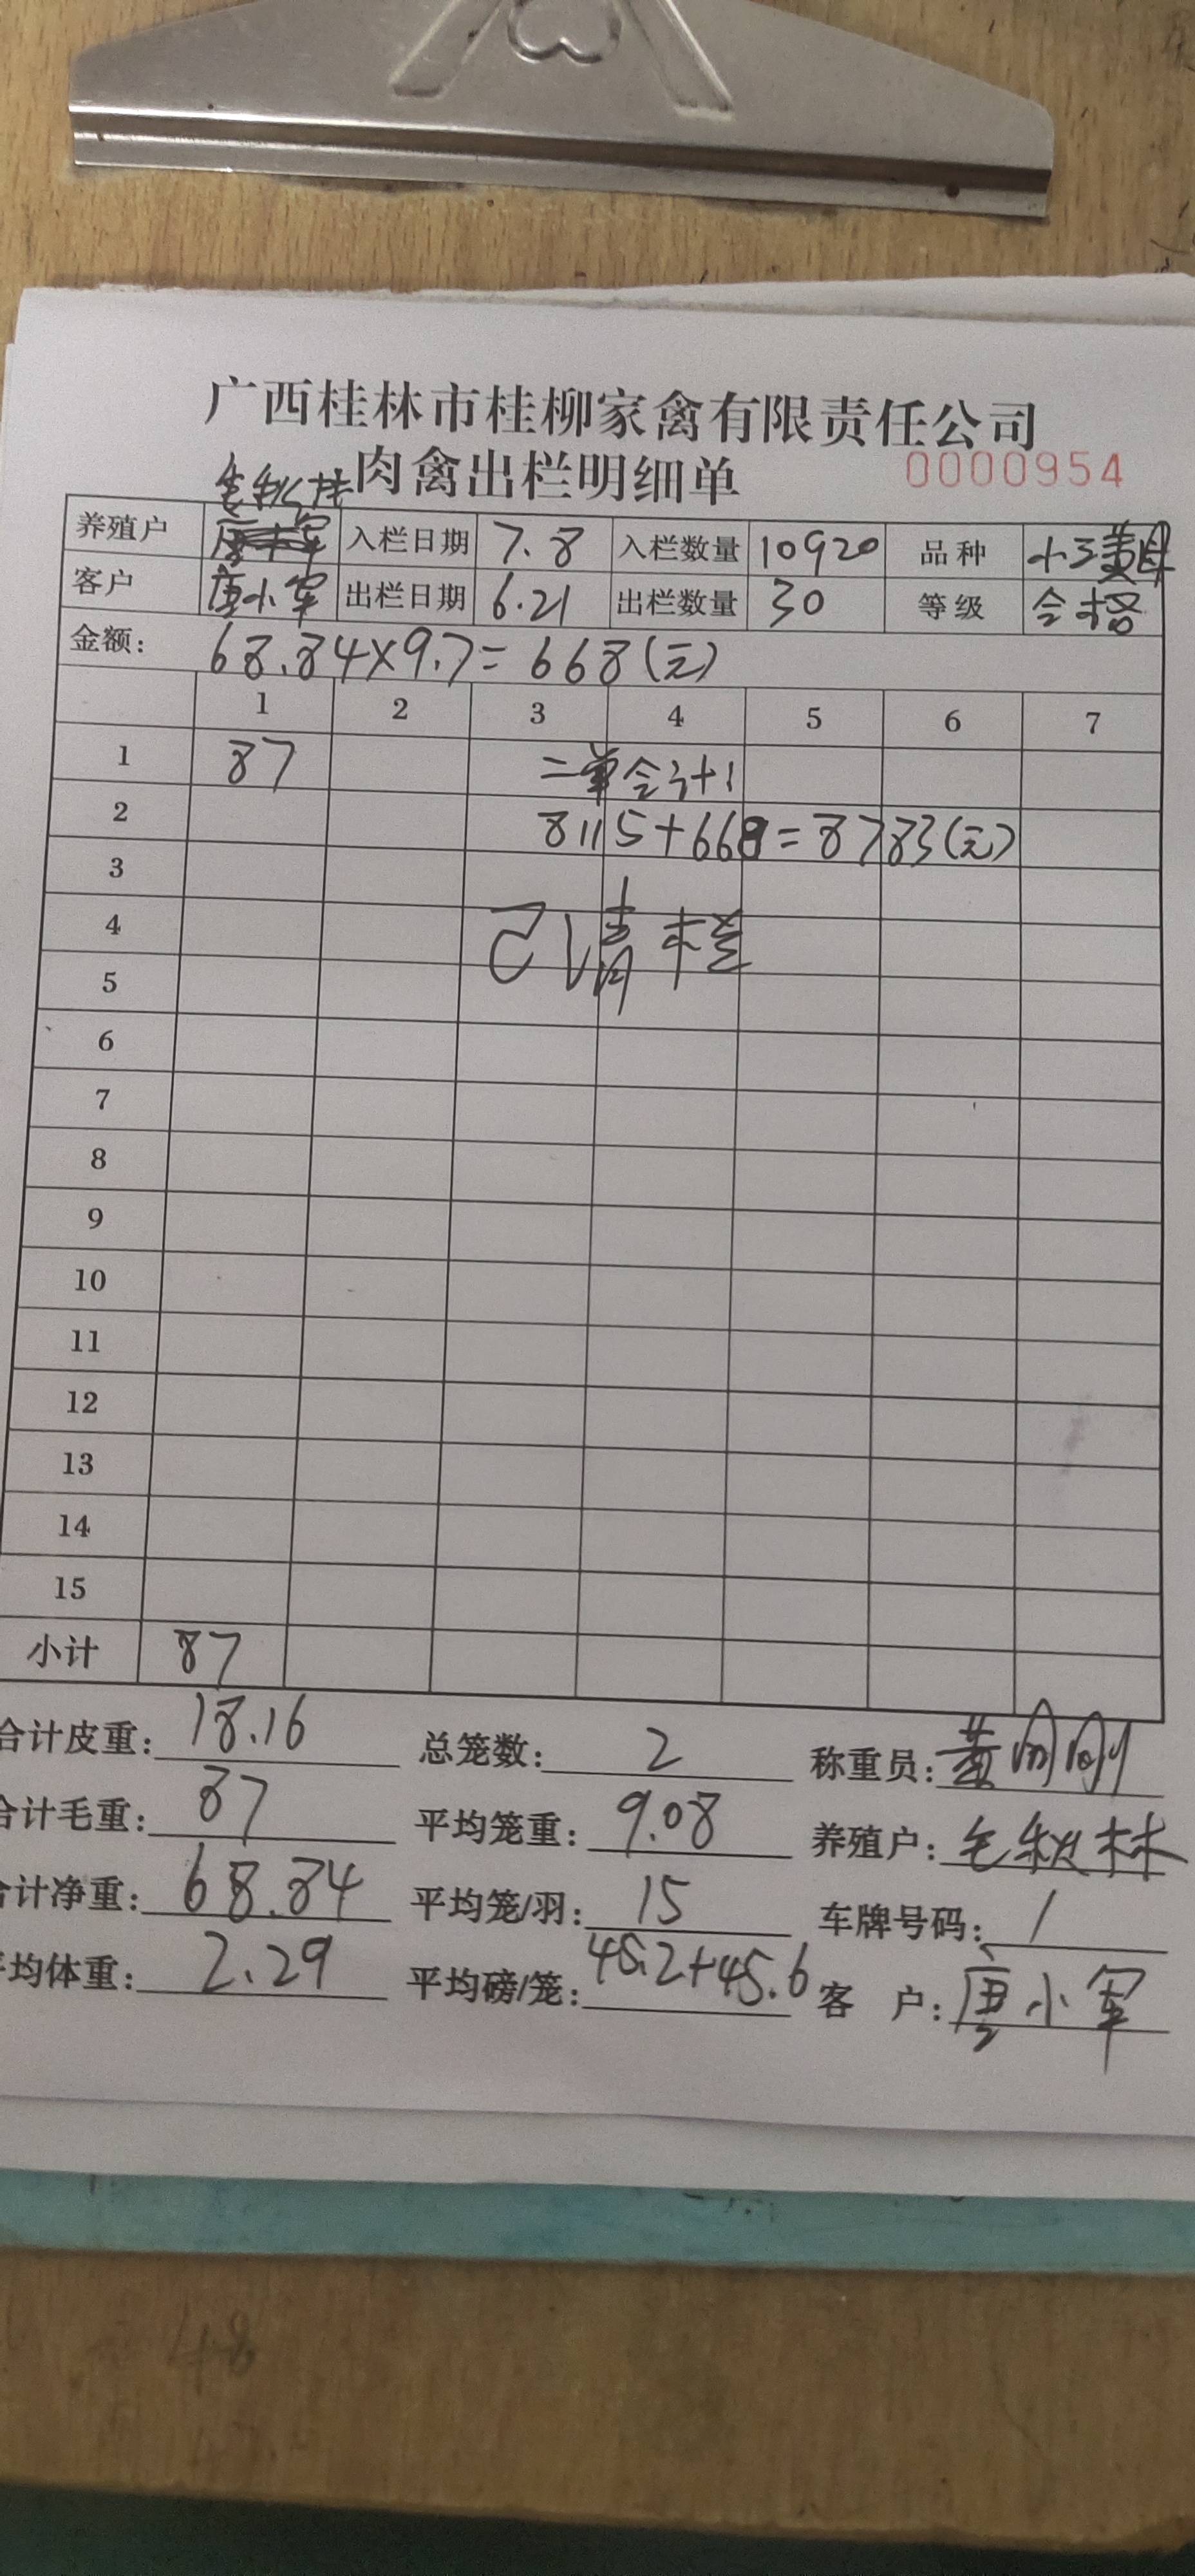 广西桂林市桂柳家禽有限责任公司
肉禽出栏明细单 0000954
养殖户 入栏日期 7.8 入栏数量 10920 品种 小三黄母
客户 唐小军 出栏日期 6.21 出栏数量 30 等级 合格
金额: 68.84×9.7=668(元)
1 2 3 4 5 6 7
1 87 二单合计:
2 8115+668=8783(元)
3
4 已清栏
5
6
7
8
9
10
11
12
13
14
15
小计 87
合计皮重: 18.16 总笼数: 2 称重员: 黄
合计毛重: 87 平均笼重: 9.08 养殖户: 毛秋林
合计净重: 68.84 平均笼/羽: 15 车牌号码: /
平均体重: 2.29 平均磅/笼: 45.6 客 户: 唐小军